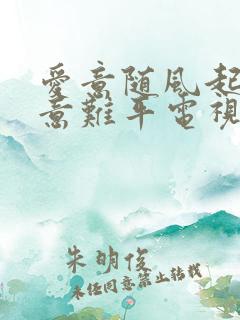 愛意随風起
意難平電視
朱明俊
未经同意禁止转载